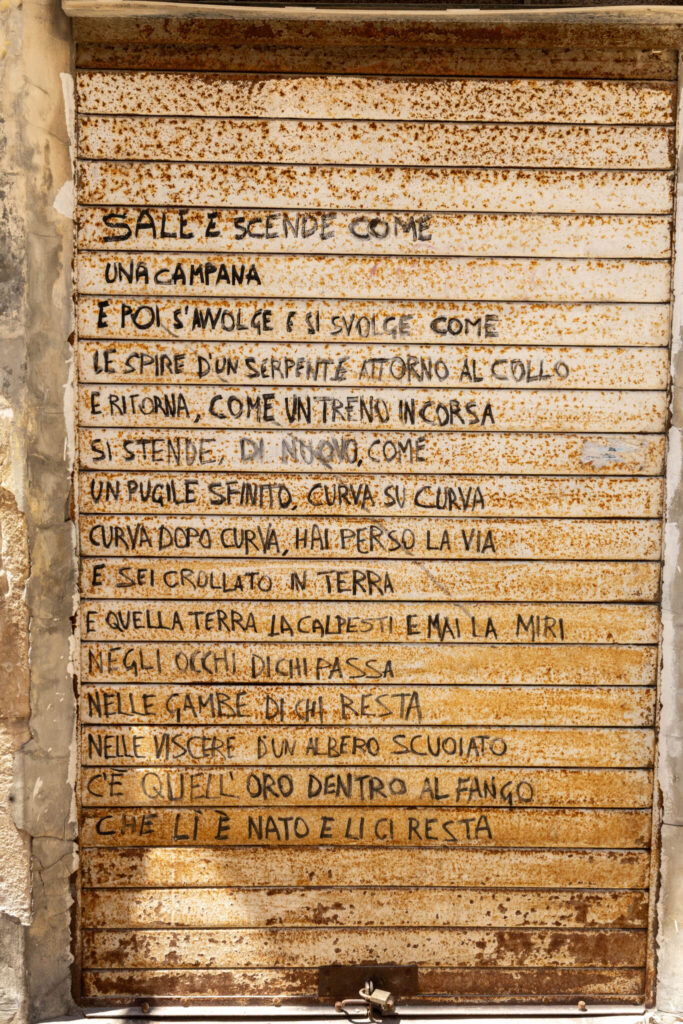 SALE E SCENDE COME
UNA CAMPANA
E POI S'AVVOLGE E SI SVOLGE COME
LE SPIRE D'UN SERPENTE ATTORNO AL COLLO
E RITORNA, COME UN TRENO IN CORSA
SI STENDE, DI NUOVO, COME
UN PUGILE SFINITO, CURVA SU CURVA
CURVA DOPO CURVA, HAI PERSO LA VIA
E SEI CROLLATO IN TERRA
E QUELLA TERRA LA CALPESTI E MAI LA MIRI
NEGLI OCCHI DI CHI PASSA
NELLE GAMBE DI CHI RESTA
NELLE VISCERE D'UN ALBERO SCUOIATO
C'È QUELL'ORO DENTRO AL FANGO
CHE LÌ È NATO E LI CI RESTA